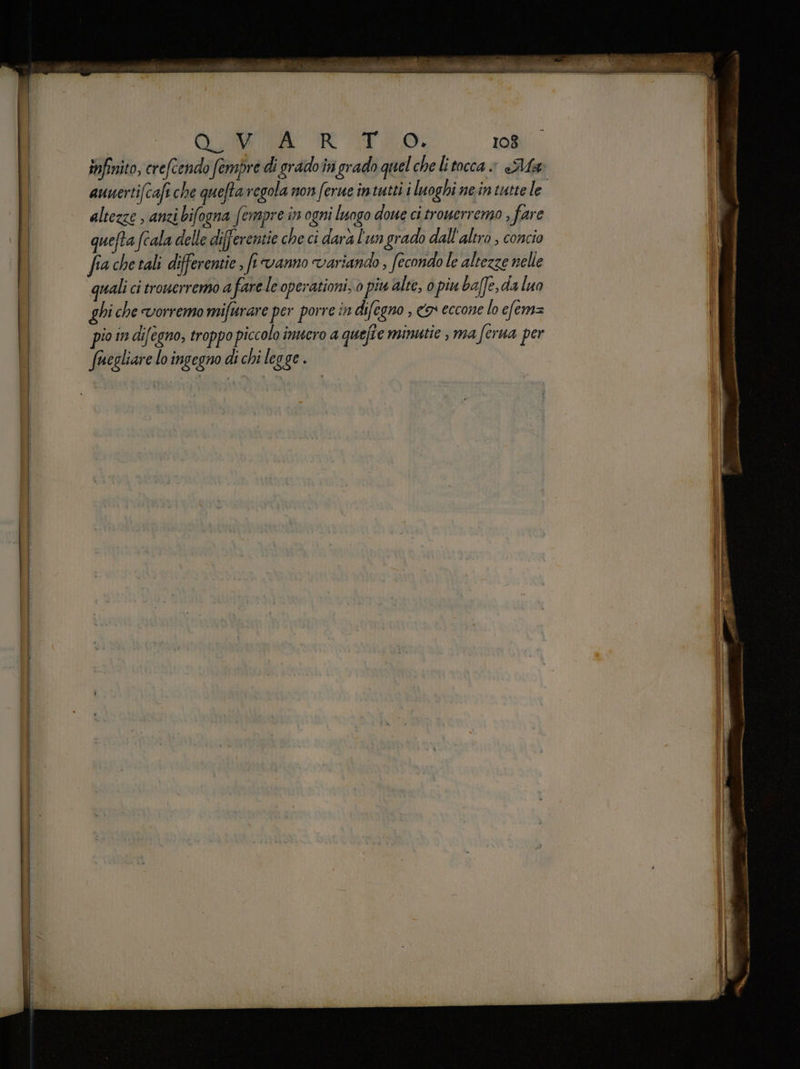 QVARTO. 108
infinito, creſcendo ſempre di grado in grado quel che li tocca. Ma
auuertiſcaſi che queſta regola non ſerue in tutti i luoghi ne in tutte le
altezze, anzi biſogna ſempre in ogni luogo doue ci trouerremo, fare
queſta ſcala delle differentie che ci darà l'un grado dall'altro, concio
ſia che tali differentie, ſi vanno variando, ſecondo le altezze nelle
quali ci trouerremo a fare le operationi, o piu alte, o piu baſſe, da luo
ghi che vorremo miſurare per porre in diſegno, & eccone lo eſem=
pio in diſegno, troppo piccolo inuero a queſte minutie, ma ſerua per
ſuegliare lo ingegno di chi legge.